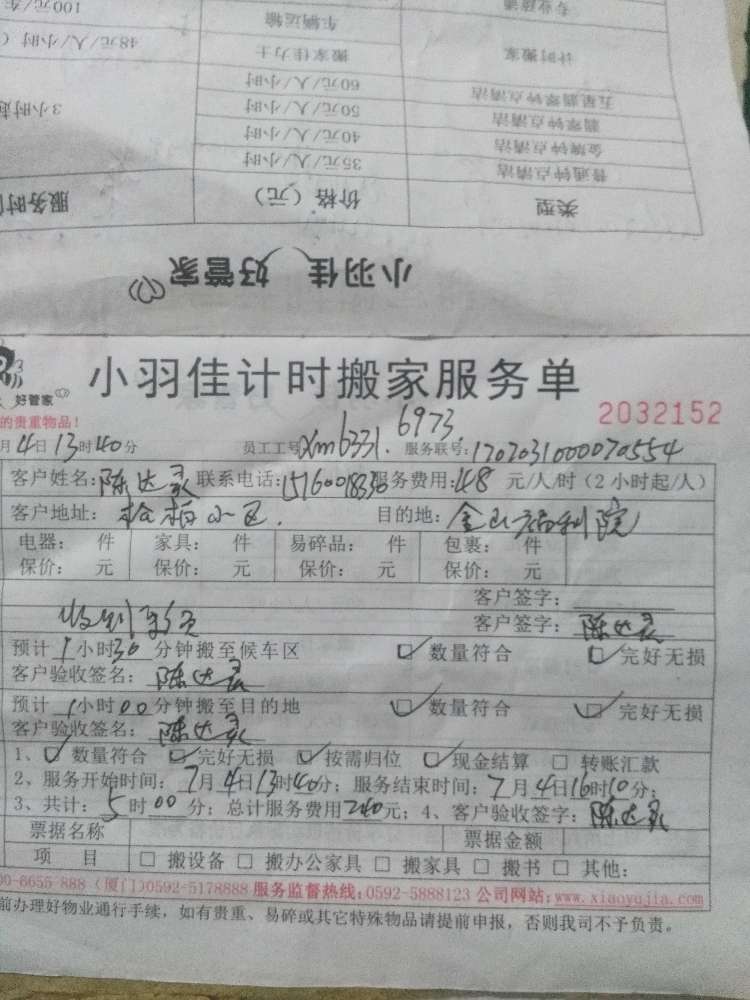 专业疏通
车辆运输
100元/车
计时搬家
搬家佳力士
48元/人/小时（
五星翡翠钟点清洁
60元/人/小时
翡翠钟点清洁
50元/人/小时
3小时起
金牌钟点清洁
40元/人/小时
普通钟点清洁
35元/人/小时
类型
价格（元）
服务时间
小羽佳 好管家
好管家
小羽佳计时搬家服务单
2032152
的贵重物品！
月4日13时40分
员工工号 Xm6331. 6973
服务联号: 170703100070554
客户姓名: 陈达灵 联系电话: 15160018330 服务费用: 48 元/人/时（2小时起/人）
客户地址: 松柏小区. 目的地: 金山福利院
电器: 件 家具: 件 易碎品: 件 包裹: 件
保价: 元 保价: 元 保价: 元 保价: 元
客户签字:
收到 客户签字: 陈达灵
预计1小时30分钟搬至候车区 数量符合 完好无损
客户验收签名: 陈达灵
预计1小时00分钟搬至目的地 数量符合 完好无损
客户验收签名: 陈达灵
1、数量符合 完好无损 按需归位 现金结算 转账汇款
2、服务开始时间: 7月4日13时40分; 服务结束时间: 7月4日16时10分;
3、共计: 5时00分; 总计服务费用240元; 4、客户验收签字: 陈达灵
票据名称 票据金额
项 目 搬设备 搬办公家具 搬家具 搬书 其他:
00-6655-888（厦门）0592-5178888 服务监督热线:0592-5888123 公司网站:www.xiaoyujia.com
前办理好物业通行手续，如有贵重、易碎或其它特殊物品请提前申报，否则我司不予负责。